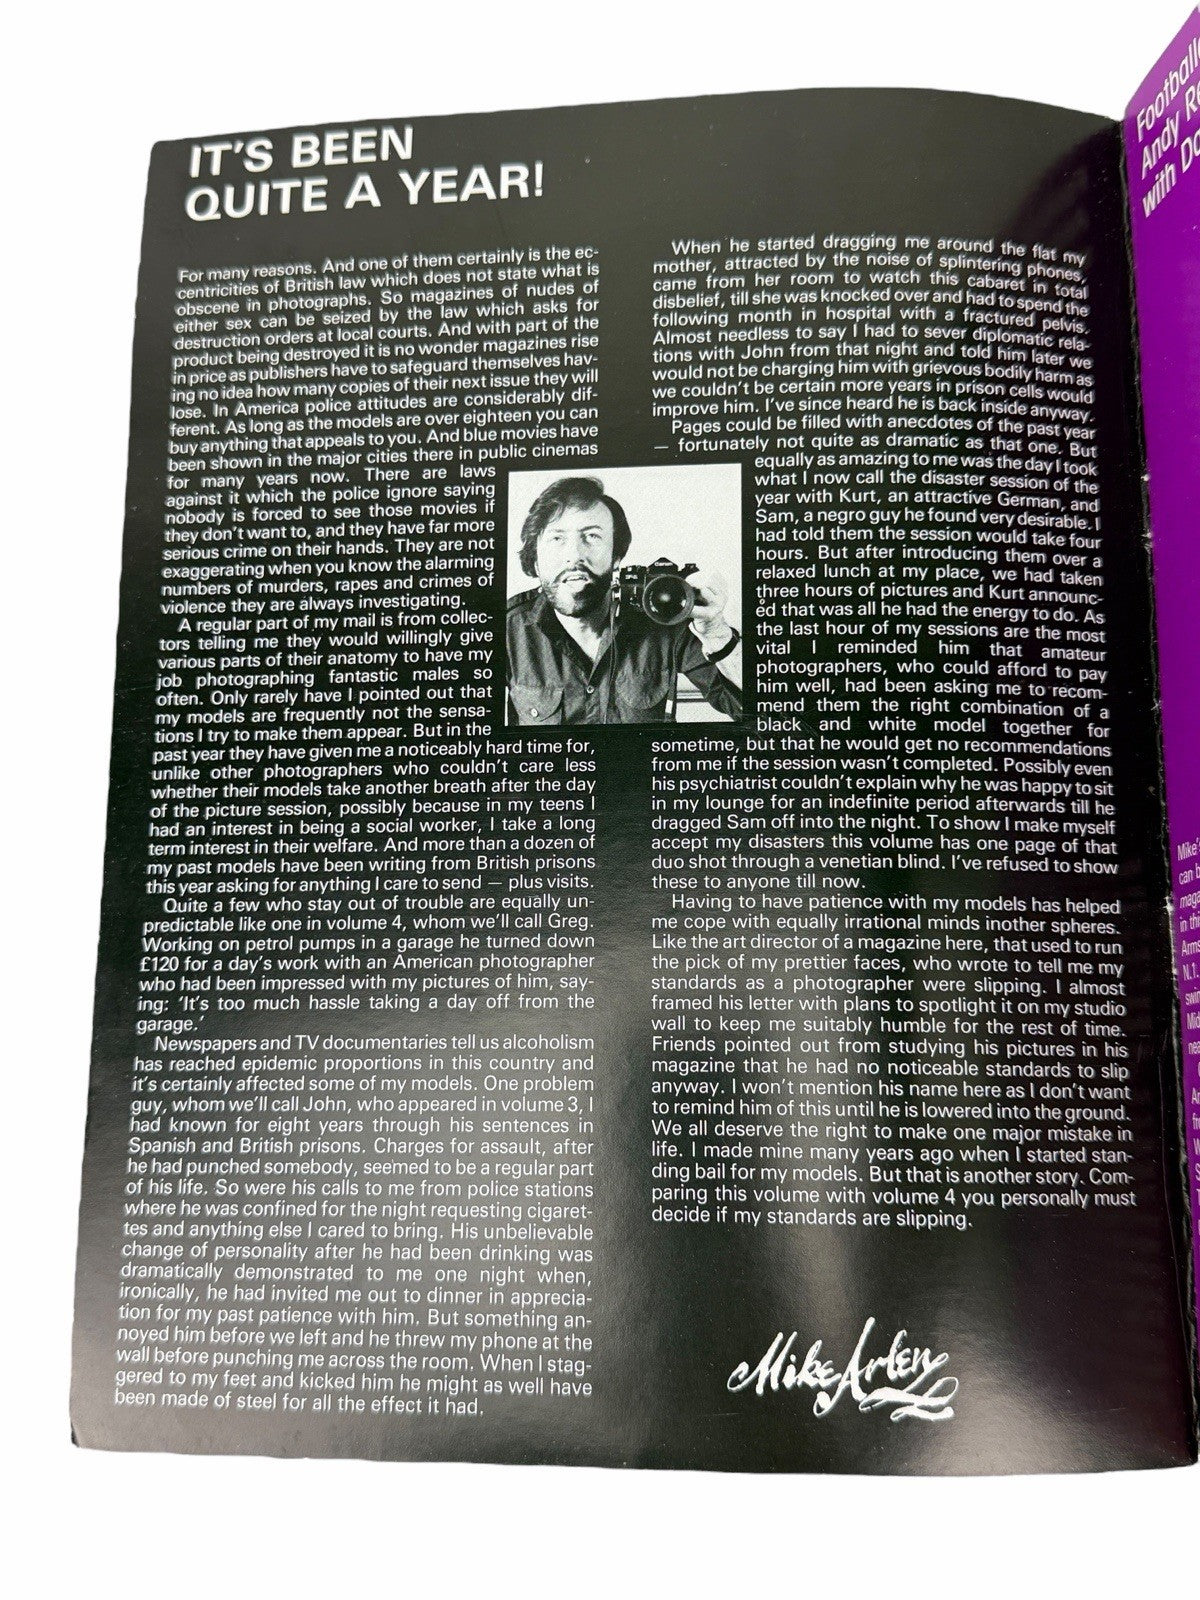 IT'S BEEN
QUITE A YEAR!
For many reasons. And one of them certainly is the ec-
centricities of British law which does not state what is
obscene in photographs. So magazines of nudes of
either sex can be seized by the law which asks for
destruction orders at local courts. And with part of the
product being destroyed it is no wonder magazines rise
in price as publishers have to safeguard themselves hav-
ing no idea how many copies of their next issue they will
lose. In America police attitudes are considerably dif-
ferent. As long as the models are over eighteen you can
buy anything that appeals to you. And blue movies have
been shown in the major cities there in public cinemas
for many years now. There are laws
against it which the police ignore saying
nobody is forced to see those movies if
they don't want to, and they have far more
serious crime on their hands. They are not
exaggerating when you know the alarming
numbers of murders, rapes and crimes of
violence they are always investigating.
A regular part of my mail is from collec-
tors telling me they would willingly give
various parts of their anatomy to have my
job photographing fantastic males so
often. Only rarely have I pointed out that
my models are frequently not the sensa-
tions I try to make them appear. But in the
past year they have given me a noticeably hard time for,
unlike other photographers who couldn't care less
whether their models take another breath after the day
of the picture session, possibly because in my teens I
had an interest in being a social worker, I take a long
term interest in their welfare. And more than a dozen of
my past models have been writing from British prisons
this year asking for anything I care to send — plus visits.
Quite a few who stay out of trouble are equally un-
predictable like one in volume 4, whom we'll call Greg.
Working on petrol pumps in a garage he turned down
£120 for a day's work with an American photographer
who had been impressed with my pictures of him, say-
ing: 'It's too much hassle taking a day off from the
garage.'
Newspapers and TV documentaries tell us alcoholism
has reached epidemic proportions in this country and
it's certainly affected some of my models. One problem
guy, whom we'll call John, who appeared in volume 3, I
had known for eight years through his sentences in
Spanish and British prisons. Charges for assault, after
he had punched somebody, seemed to be a regular part
of his life. So were his calls to me from police stations
where he was confined for the night requesting cigaret-
tes and anything else I cared to bring. His unbelievable
change of personality after he had been drinking was
dramatically demonstrated to me one night when,
ironically, he had invited me out to dinner in apprecia-
tion for my past patience with him. But something an-
noyed him before we left and he threw my phone at the
wall before punching me across the room. When I stag-
gered to my feet and kicked him he might as well have
been made of steel for all the effect it had.
When he started dragging me around the flat my
mother, attracted by the noise of splintering phones,
came from her room to watch this cabaret in total
disbelief, till she was knocked over and had to spend the
following month in hospital with a fractured pelvis.
Almost needless to say I had to sever diplomatic rela-
tions with John from that night and told him later we
would not be charging him with grievous bodily harm as
we couldn't be certain more years in prison cells would
improve him. I've since heard he is back inside anyway.
Pages could be filled with anecdotes of the past year
— fortunately not quite as dramatic as that one. But
equally as amazing to me was the day I took
what I now call the disaster session of the
year with Kurt, an attractive German, and
Sam, a negro guy he found very desirable. I
had told them the session would take four
hours. But after introducing them over a
relaxed lunch at my place, we had taken
three hours of pictures and Kurt announc-
ed that was all he had the energy to do. As
the last hour of my sessions are the most
vital I reminded him that amateur
photographers, who could afford to pay
him well, had been asking me to recom-
mend them the right combination of a
black and white model together for
sometime, but that he would get no recommendations
from me if the session wasn't completed. Possibly even
his psychiatrist couldn't explain why he was happy to sit
in my lounge for an indefinite period afterwards till he
dragged Sam off into the night. To show I make myself
accept my disasters this volume has one page of that
duo shot through a venetian blind. I've refused to show
these to anyone till now.
Having to have patience with my models has helped
me cope with equally irrational minds inother spheres.
Like the art director of a magazine here, that used to run
the pick of my prettier faces, who wrote to tell me my
standards as a photographer were slipping. I almost
framed his letter with plans to spotlight it on my studio
wall to keep me suitably humble for the rest of time.
Friends pointed out from studying his pictures in his
magazine that he had no noticeable standards to slip
anyway. I won't mention his name here as I don't want
to remind him of this until he is lowered into the ground.
We all deserve the right to make one major mistake in
life. I made mine many years ago when I started stan-
ding bail for my models. But that is another story. Com-
paring this volume with volume 4 you personally must
decide if my standards are slipping.
Mike Arlen
Andy
with
Mike's
can
in
N.1.